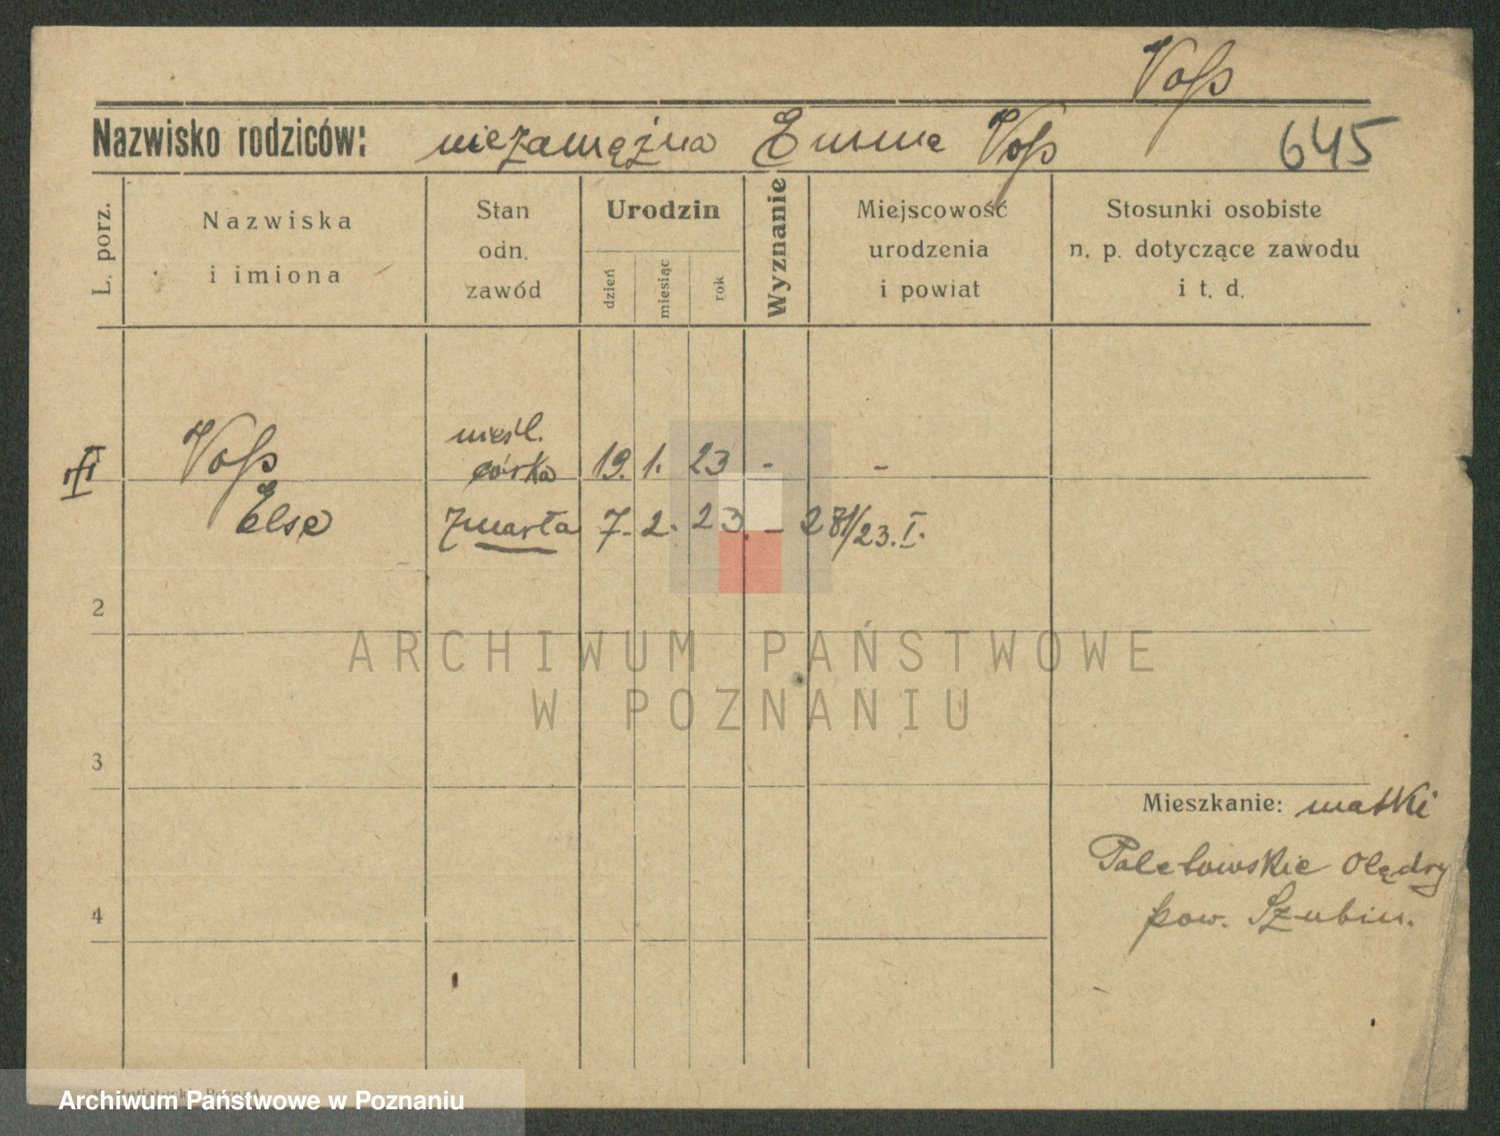 Voß
Nazwisko rodziców: niezamężna Emma Voß 645
L. porz.
Nazwiska
i imiona
Stan
odn.
zawód
Urodzin
dzień
miesiąc
rok
Wyznanie
Miejscowość
urodzenia
i powiat
Stosunki osobiste
n. p. dotyczące zawodu
i t. d.
nieśl.
Voß córka 19. 1. 23 - -
Else zmarła 7. 2. 23. - 271/23. I.
2
ARCHIWUM PAŃSTWOWE
W POZNANIU
3
Mieszkanie: matki
Olędry
pow. Szubin.
4
Archiwum Państwowe w Poznaniu